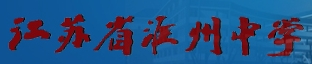 江苏省淮州中学